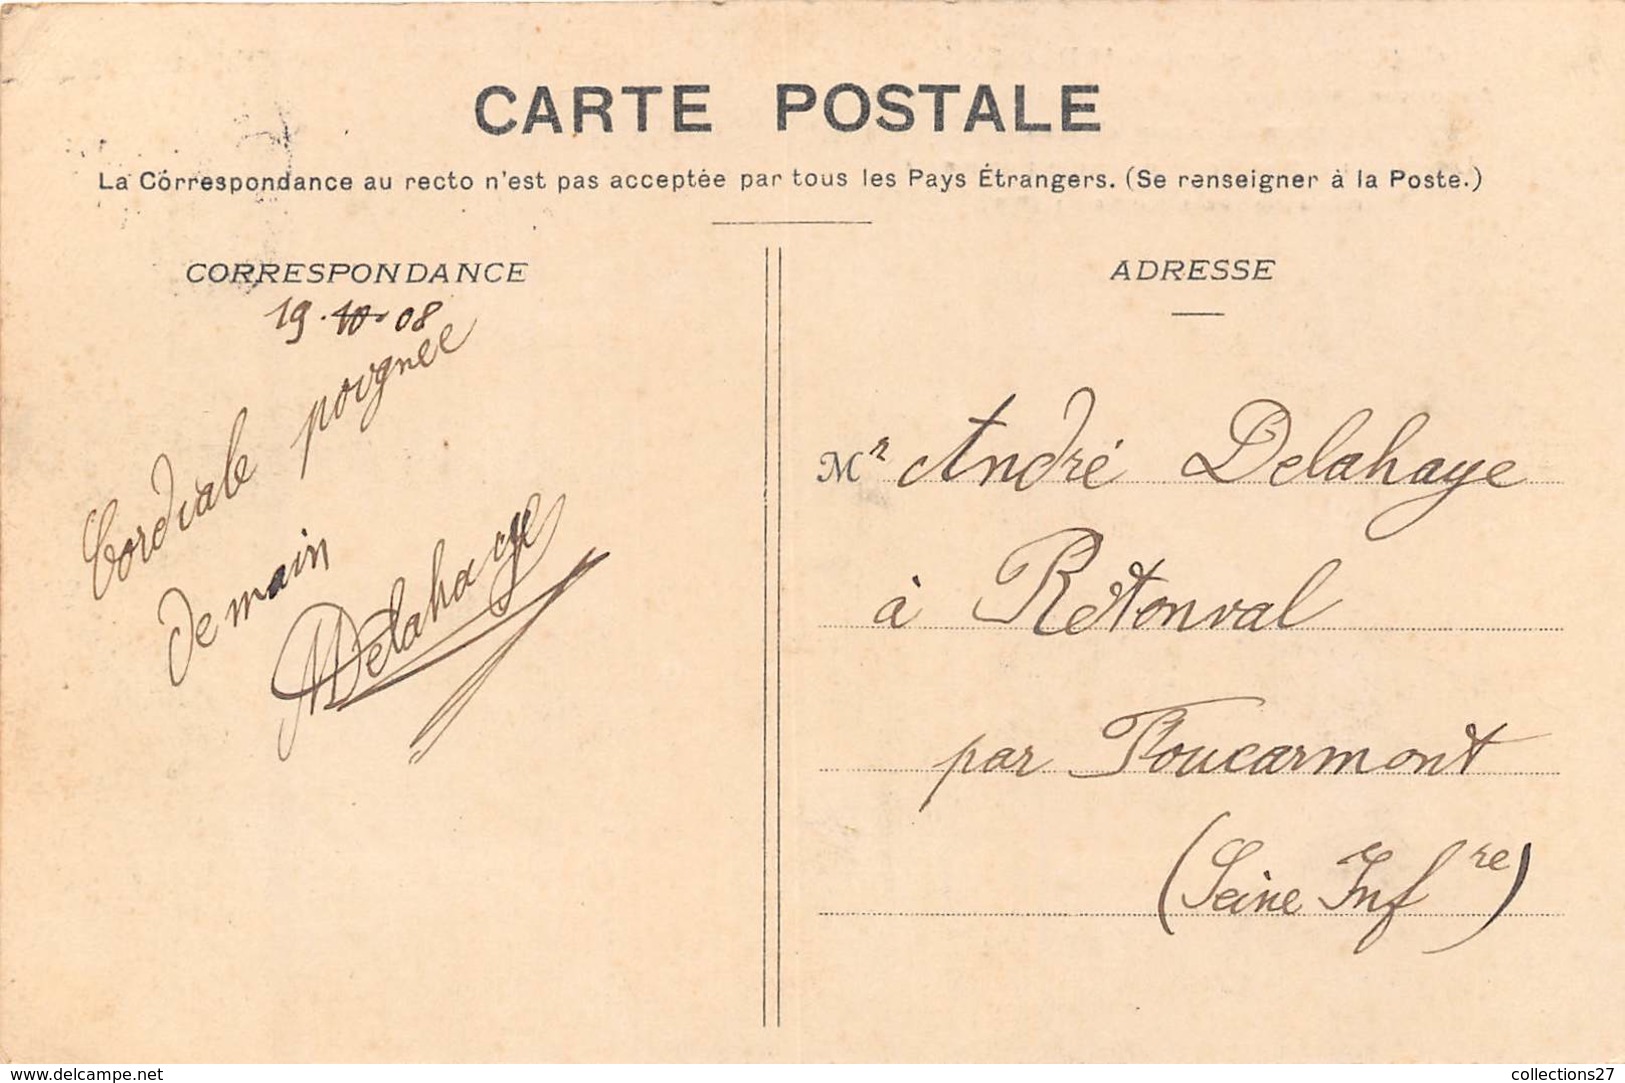 CARTE POSTALE
La Correspondance au recto n'est pas acceptée par tous les Pays Étrangers. (Se renseigner à la Poste.)
CORRESPONDANCE
19.10.08
Cordiale poignee
de main
Delahaye
ADRESSE
Mr André Delahaye
à Retonval
par Foucarmont
(Seine Infre)
www.delcampe.net
collections27